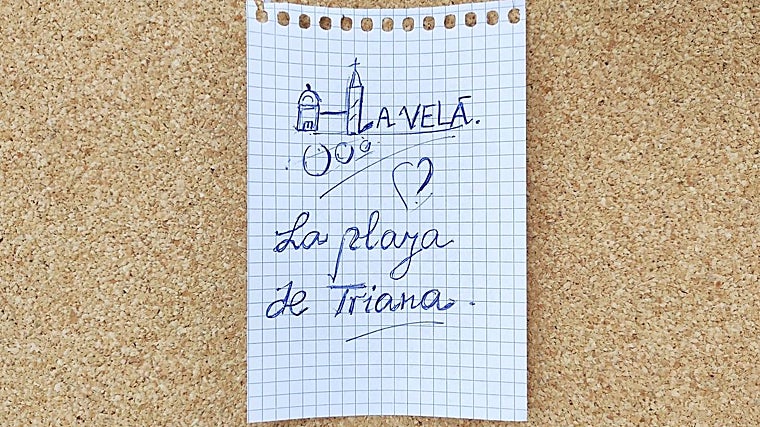 LA VELÁ.
La playa
de Triana.